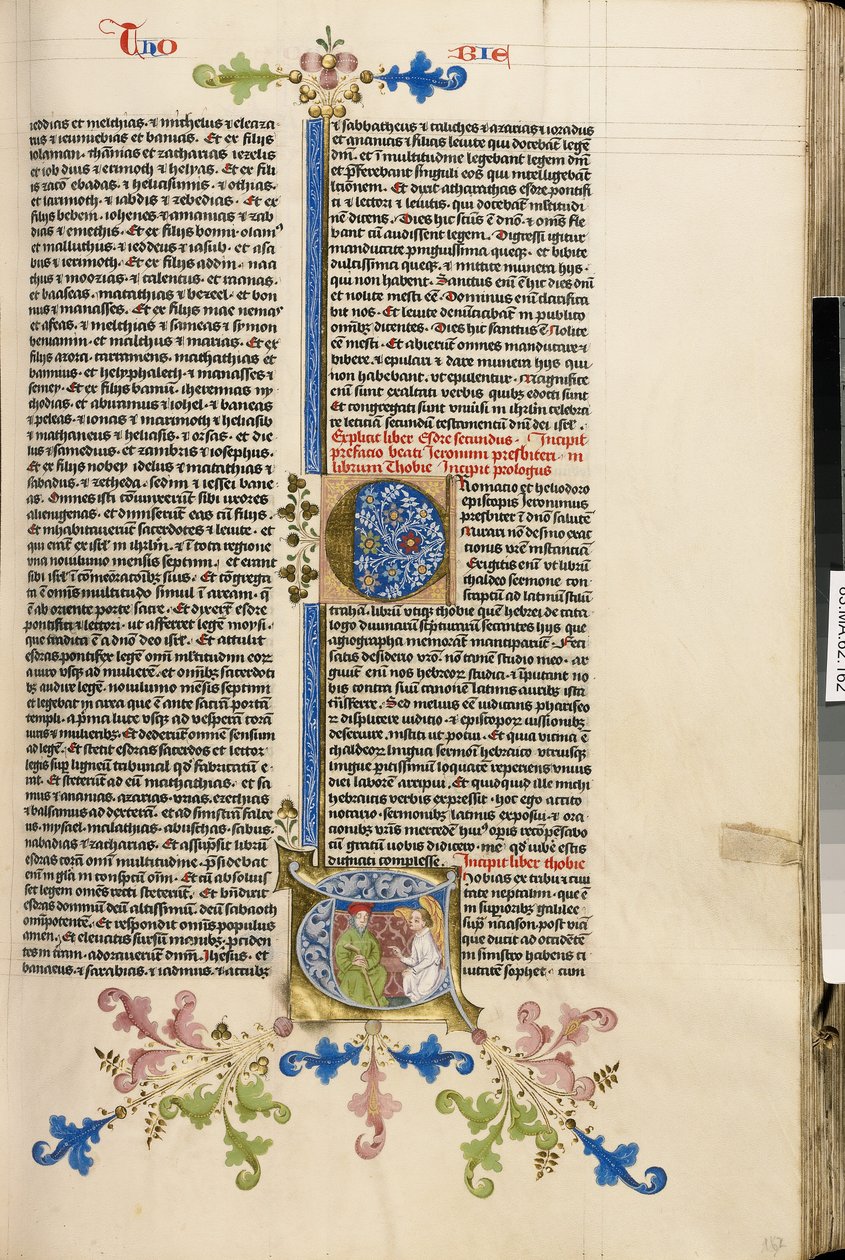 Tho
bie
ieddias et melchias. et michelus et eleaza
rus et iemnebias et banias. Et ex filijs
iolaman. chamas et zacharias iezrelis
et iob dius et erimoth et helyas. Et ex fili
is zaton ebadas. et heliasumis. et othias.
et larimoth. et iabdis et zebedias. Et ex
filijs bebein. iohenes et amanias et zab
dias et emethis. Et ex filijs bonni. olamꝰ
et malluthus. et ieddeus et iasub. et asa
bus et ierimoth. Et ex filijs addin. naa
thus et moozias. et calentus. et raanas.
et baaseas. matathias et bezeel. et bon
nus et manasses. Et ex filijs nuae nemaꝰ
et afeas. et melchias et sameas et symon
beniamin. et malchus et marias. Et ex
filijs azora. cartaneus. mathathias et
bannus. et helyphalech. et manasses et
semey. Et ex filijs banun. iheremias my
thodias. et aburamus et iohel. et baneas
et peleas. et ionas et marimoth et heliasib
et mathaneus et heliasis. et orsas. et die
lus et samedius. et zambris et iosephus.
Et ex filijs nobey idelus et matathias et
sabadus. et zetheda. sedmi et iessei bane
as. Omnes isti cõiunxerũt sibi uxores
alienigenas. et dimiserũt eas cũ filijs.
Et inhabitauerũt sacerdotes et leuite. et
qui erãt ex isrl. in ihrlm. et ĩ tota regione
vna nouilunio mensis septimi. et erant
filij isrl ĩ cõmeoracõibꝫ suis. Et cõgrega
ta ẽ omĩs multitudo simul ĩ aream. q̃
ẽ ab oriente porte sacre. Et dixerũt esdre
pontifici et lectori. ut afferret legẽ moysi.
que tradita ẽ a dño deo isrl. Et attulit
esdras pontifex legẽ omĩ m̃ltitudini eoꝝ
a viro vsqꝫ ad mulierẽ. et omĩbꝫ sacerdoti
bꝫ audire legẽ. nouilunio mẽsis septimi
et legebat in area que ẽ ante sacrã portã
templi. a p̃ma luce vsqꝫ ad vesperã corã
viris et mulieribꝫ. Et dederũt omnẽ sensum
ad legẽ. Et stetit esdras sacerdos et lector
legis sup̃ ligneũ tribunal qd̃ fabricatũ e
rat. Et steterũt ad eũ mathathias. et sa
mus et ananias. azarias. vrias. ezechias
et balsamus ad dexterã. et ad sinistrã falce
us. mysael. malathias. abusthas. sabus.
nabadias et zacharias. Et assũpsit librũ
esdras corã omĩ multitudine. p̃sidebat
enĩ in gl̃a in cõspectu oĩm. Et cũ absoluis
set legem omẽs recti steterũt. Et bñdixit
esdras dominũ deũ altissimũ. deũ sabaoth
omĩpotentẽ. Et respondit omĩs populus
amen. Et eleuatis sursũ manibꝫ. p̃ciden
tes in terram. adorauerũt dñm. Ihesus. et
banaeus. et sarabias. et iadimus. et accubꝫ
et sabbatheus et caliches et azarias et ioradus
et ananias et filias leuite qui docebãt legẽ
dñi. et ĩ multitudine legebant legem dñi
et p̃ferebant singuli eos qui intelligebãt
lc̃ionem. Et dixit atharathas esdre pontifi
ci et lectori et leuitis. qui docebãt m̃ltitudi
nẽ dicens. Dies hic sc̃us ẽ dño. et om̃s fle
bant cũ audissent legem. Digressi igitur
manducate pinguissima queqꝫ. et bibite
dulcissima queqꝫ. et mittite munera hijs.
qui non habent. Sanctus enĩ ẽ hic dies dñi
et nolite mesti eẽ. Dominus enĩ clarifica
bit nos. Et leuite denũciabãt in publico
omĩbꝫ dicentes. Dies hic sanctus ẽ Nolite
eẽ mesti. Et abierũt omnes manducare et
bibere. et epulari et dare munera hijs qui
non habebant. vt epulentur. Magnifice
enĩ sunt exaltati verbis quibꝫ edocti sunt
Et congregati sunt vniũsi in ihrlm celebra
re leticiã secundũ testamentũ dñi dei isrl.
Explicit liber Esdre secundus. Incipit
prefacio beati Jeronimi presbiteri. in
librum Thobie Incipit prologus
Cromatio et heliodoro
episcopis Jeronimus
presbiter ĩ dño salutẽ
Mirari nõ desino exac
tionis vr̃e instanciã
Exigitis enĩ vt librũ
chaldeo sermone con
scriptũ ad latinũ stilũ
trahã. librũ vtiqꝫ thobie quẽ hebrei de cata
logo diuinarũ sc̃pturarũ secantes hijs que
agiographa memorãt manciparũt. Feci
satis desiderio vr̃o. nõ tamẽ studio meo. ar
guũt enĩ nos hebreoꝝ studia. et ĩputant no
bis contra suũ canonẽ latinis auribꝫ ista
trãsferre. Sed melius eẽ iudicans phariseo
rꝫ displicere iudicio. et episcopoꝝ iussionibꝫ
deseruire. institi ut potui. Et quia vicina ẽ
chaldeoꝝ lingua sermoni hebraico vtriusqꝫ
lingue p̃itissimũ loquacẽ reperiens vnius
diei laborẽ arripui. Et quidquid ille michi
hebraicis verbis expressit. hoc ego accito
notario. sermonibꝫ latinis exposui. et ora
cionibꝫ vr̃is mercedẽ huiꝰ opis recõpensabo
cũ gratũ uobis didicero. me qd̃ iubẽ estis
dignati complesse. Incipit liber thobie
Tobias ex tribu et ciui
tate neptalim. que ẽ
in sup̃ioribꝫ galilee
sup̃ naason. post viã
que ducit ad occidẽtẽ
in sinistro habens ci
uitatẽ sophet. cum
83.MA.62.162
162